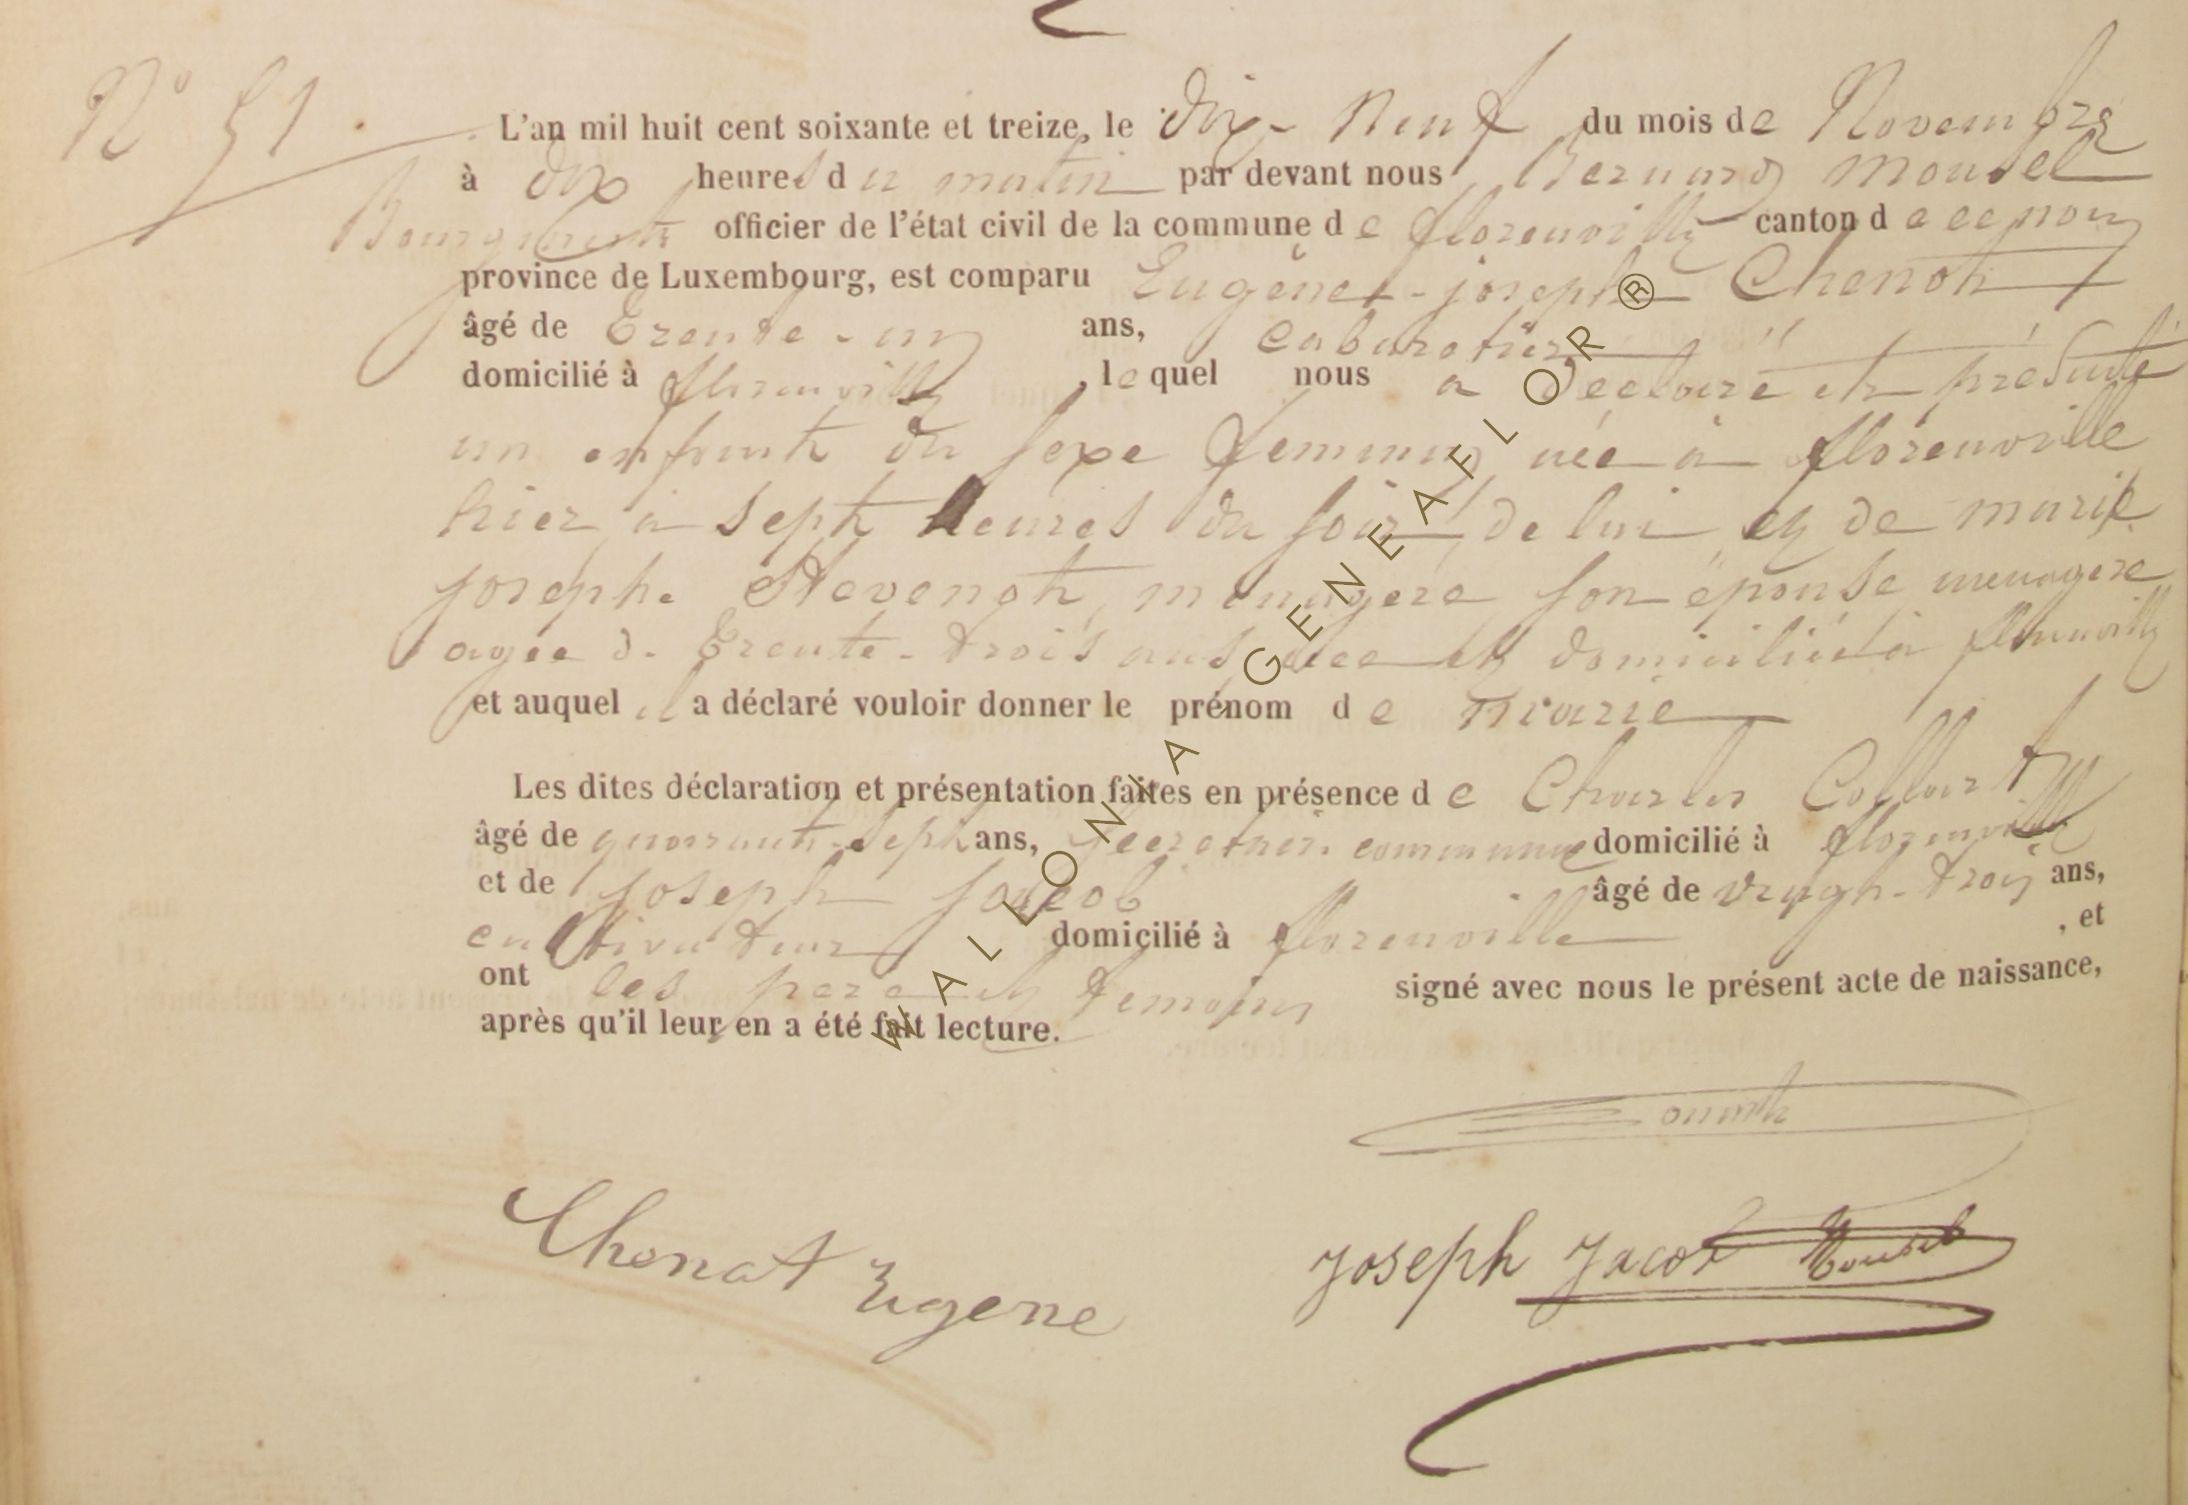 N° 51.
L'an mil huit cent soixante et treize, le dix-neuf du mois de Novembre
à dix heures du matin par devant nous Bernard Mousel
Bourgmestre officier de l'état civil de la commune de florenville canton de
province de Luxembourg, est comparu Eugène-joseph Chenot
âgé de Trente-un ans, cabaretier
domicilié à florenville, lequel nous a déclaré et présenté
un enfant du sexe feminin née à florenville
hier à sept heures du soir, de lui et de marie
josephe Stevenot, menagere son épouse, menagere
agée de Trente-trois ans, née et domiciliée à florenville
et auquel il a déclaré vouloir donner le prénom de Marie
Les dites déclaration et présentation faites en présence de Charles Collart
âgé de quarante-sept ans, secretaire communal domicilié à florenville
et de joseph jacob âgé de vingt-trois ans,
cultivateur domicilié à florenville, et
ont les pere et temoins signé avec nous le présent acte de naissance,
après qu'il leur en a été fait lecture.
Chenot Eugene
Joseph Jacob Mousel
WALLONIA GENEAFLOR ®